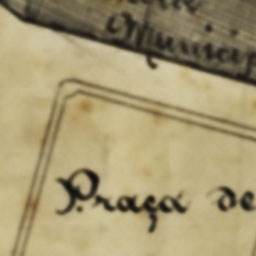 Municip
Praça de